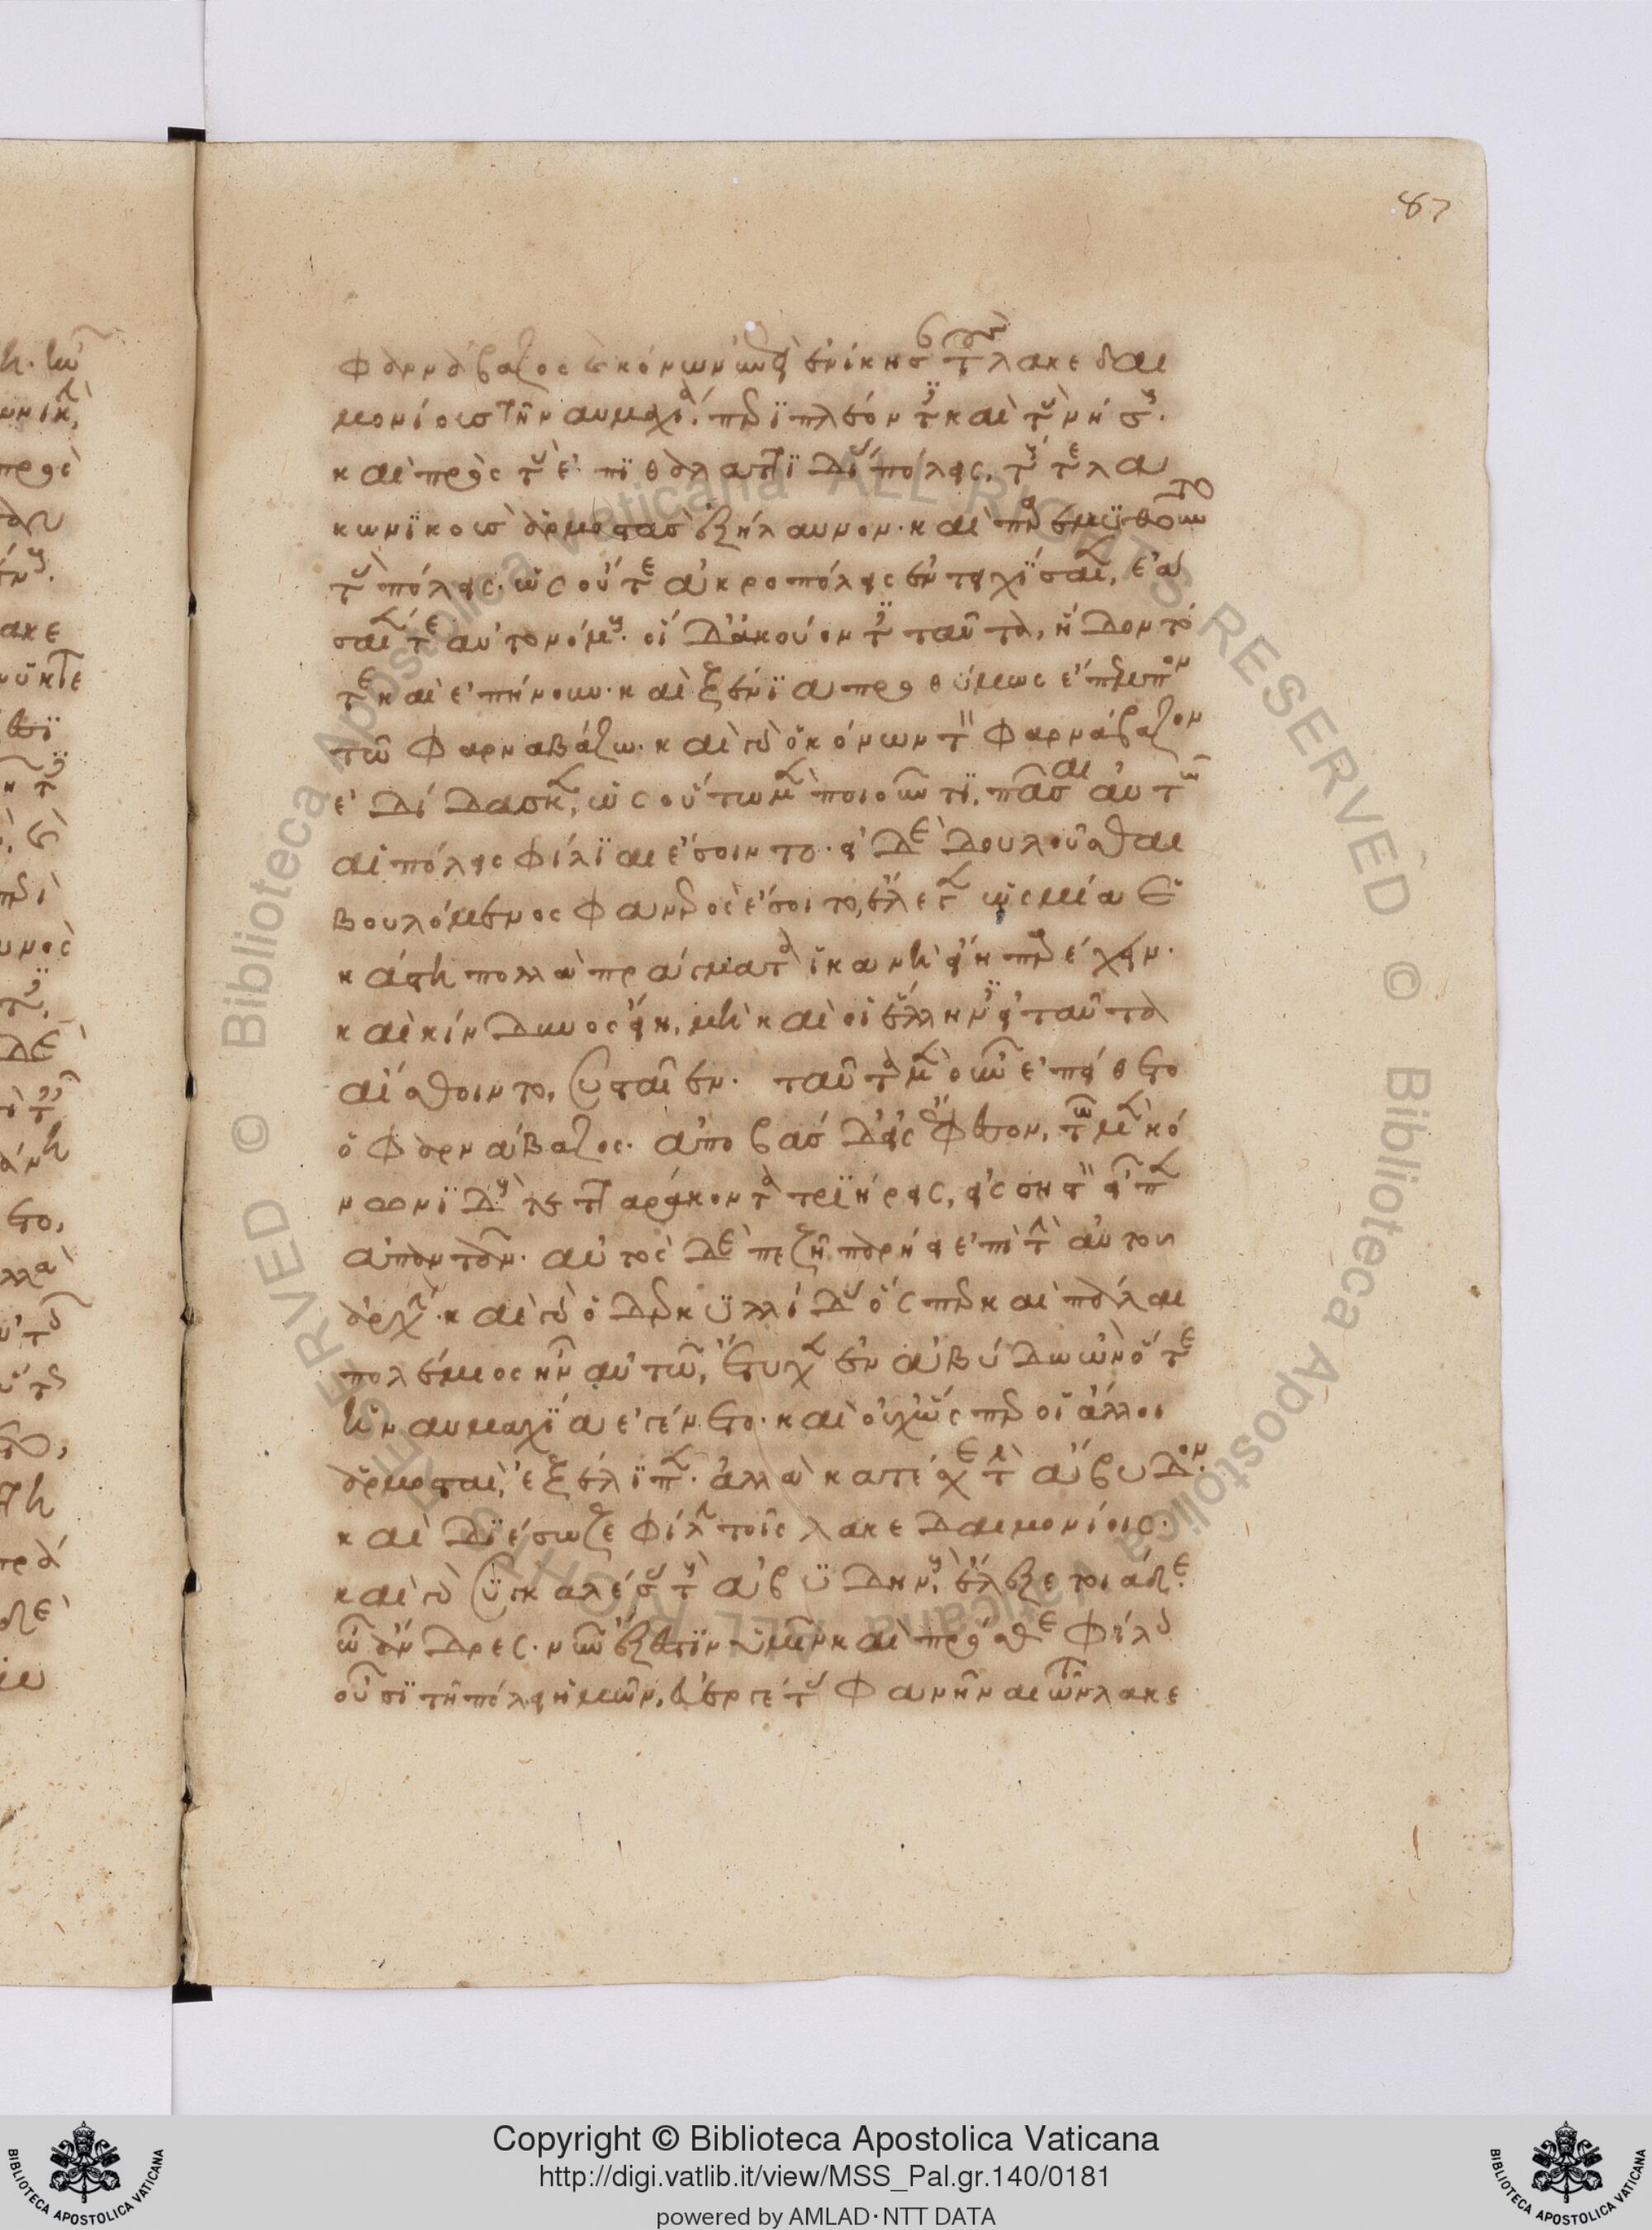 Φαρνάβαζος καὶ κόνων ἐπεὶ ἐνίκησαν τοὺς λακεδαι
μονίους τῆ ναυμαχία. περϊπλέοντες καὶ τὰς νήσους.
καὶ πρὸς τὰς ἐπϊθαλαττϊδίας πόλεις, τούς τε λα
κωνϊκοὺς ἁρμοστὰς ἐξήλαυνον. καὶ παρεμϋθοῦντο
τὰς πόλεις. ὡς οὔτε ἀκροπόλεις ἐντειχΐσαιεν, ἐά
σαιέν τε αὐτονόμους. οἱ δ' ἀκούοντες ταῦτα, ἥδοντό
τε καὶ ἐπήνουν. καὶ ξένϊα προθύμως ἔπεμπον
τῶ Φαρναβάζω. καὶ γὰρ ὁ κόνων τὸν Φαρνάβαζον
ἐδίδασκεν, ὡς οὕτω μὲν ποιοῦντϊ, πᾶσαι αὐτῶ
αἱ πόλεις φίλϊαι ἔσοιντο. εἰ δὲ δουλοῦσθαι
βουλόμενος φανερὸς ἔσοιτο, ἔλεγεν ὡς μία ἑ
κάστη πολλὰ πράγματα ἱκανὴ εἴη παρέχειν.
καὶ κίνδυνος εἴη, μὴ καὶ οἱ ἕλληνες εἰ ταῦτα
αἴσθοιντο, συσταῖεν. ταῦτα μὲν οὖν ἐπείθετο
ὁ Φαρνάβαζος. ἀποβὰς δ' εἰς ἔφεσον, τῶ μὲν κό
νωνϊ δοὺς τετταράκοντα τρϊήρεις, εἰς σηστὸν εἶπεν
ἀπαντᾶν. αὐτὸς δὲ πεζῆ παρήει ἐπὶ τὴν αὐτοῦ
ἀρχήν. καὶ γὰρ ὁ δερκϋλλίδας ὅσπερ καὶ πάλαι
πολέμιος ἦν αὐτῶ, ἔτυχεν ἐν ἀβύδω ὢν ὅτε
ἡ ναυμαχϊα ἐγένετο. καὶ οὐχ ὥσπερ οἱ ἄλλοι
ἁρμοσταὶ, ἐξέλϊπεν. ἀλλὰ κατέσχε τὴν ἄβυδον.
καὶ δϊέσωζε φίλην τοῖς λακεδαιμονίοις.
καὶ γὰρ συγκαλέσας τοὺς ἀβϋδηνοὺς, ἔλεξε τοιάδε.
ὦ ἄνδρες. νῦν ἔξεστϊν ὑμῖν καὶ πρόσθε φίλοις
οὖσϊ τῆ πόλει ἡμῶν, εὐεργέτας φανῆναι τῶν λακε
87